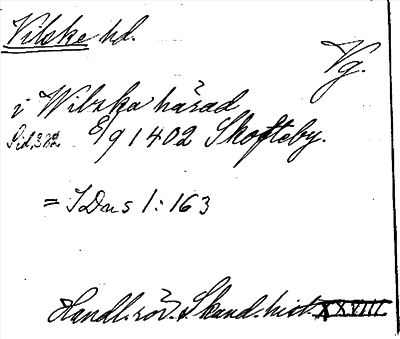 Vilske hd.
Vg.
i Wilzka härad
Sid. 372 E/9 1402 Skofteby.
= SDns 1:163
Handl. rör. Skand. hist. XXVIII